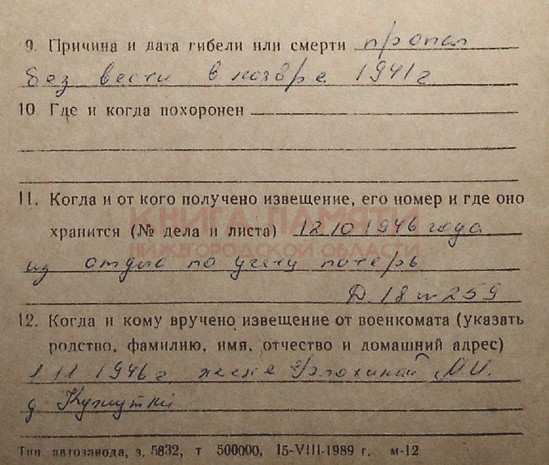 9. Причина и дата гибели или смерти пропал
без вести в ноябре 1941г
10. Где и когда похоронен
11. Когда и от кого получено извещение, его номер и где оно
хранится (№ дела и листа) 12.10 1946 года
из отдела по учету потерь
Д. 18 л 259
12. Когда и кому вручено извещение от военкомата (указать
родство, фамилию, имя, отчество и домашний адрес)
1 11 1946г жене М.И.
д
КНИГА ПАМЯТИ
НИЖЕГОРОДСКОЙ ОБЛАСТИ
Тип. автозавода, з. 5832, т 500000, 15-VIII-1989 г. м-12